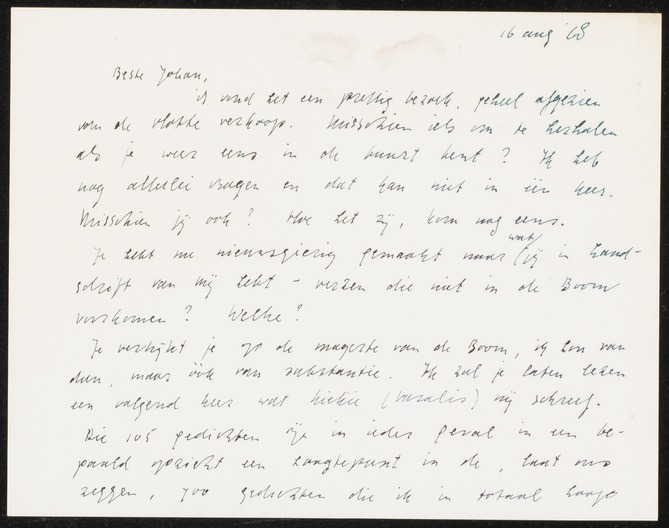 16 aug '68
Beste Johan,
ik vond het een prettig bezoek, geheel afgezien
van de vlotte verkoop. Misschien iets om te herhalen
als je weer eens in de buurt bent? Ik heb
nog allerlei vragen en dat kan niet in één keer.
Misschien jij ook? Hoe het zij, kom nog eens.
Je hebt me nieuwsgierig gemaakt naar wat jij in hand-
schrift van mij hebt – verzen die niet in de Boom
voorkomen? Welke?
Je verkijkt je op de magerte van de Boom, ik hou van
dun, maar óók van substantie. Ik zal je laten lezen
een volgend keer wat Kiekie (Vasalis) mij schreef.
Die 105 gedichten zijn in ieder geval in een be-
paald opzicht een hoogtepunt in de, laat ons
zeggen, 700 gedichten die ik in totaal hoop